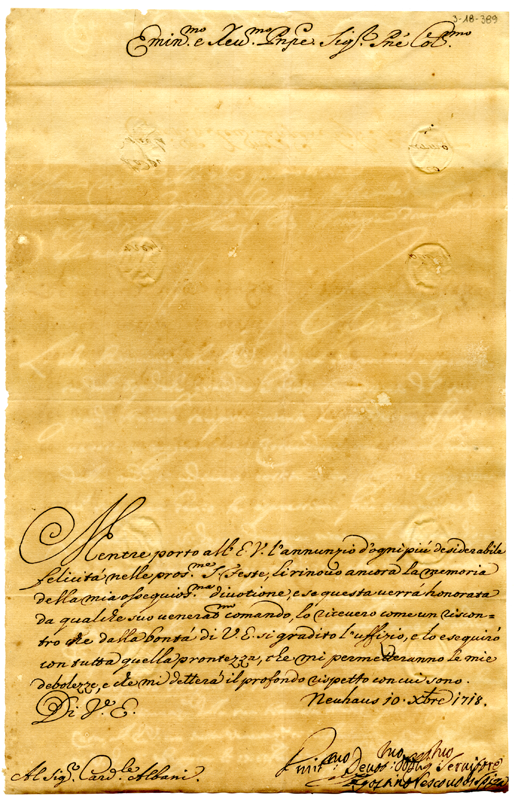 3-18-389
Emin.mo e Rev.mo Pnpe Sigr. Pne Col.mo
Mentre porto all' E V. l'annunzio d'ogni più desiderabile
felicità nelle pross.me S. Feste, li rinovo ancora la memoria
della mia ossequios.ma divotione, e se questa verrà honorata
da qualche suo venerad.mo comando, lo riceverò come un riscon-
tro che dalla bontà di V. E. si gradito l'uffizio, e lo eseguirò
con tutta quella prontezza, che mi permetteranno le mie
debolezze, e che mi detterà il profondo rispetto con cui sono.
Di V. E.
Neuhaus 10. Xbre 1718.
Al Sigr. Card.le Albani
Devot.mo Servitore
Vescovo di